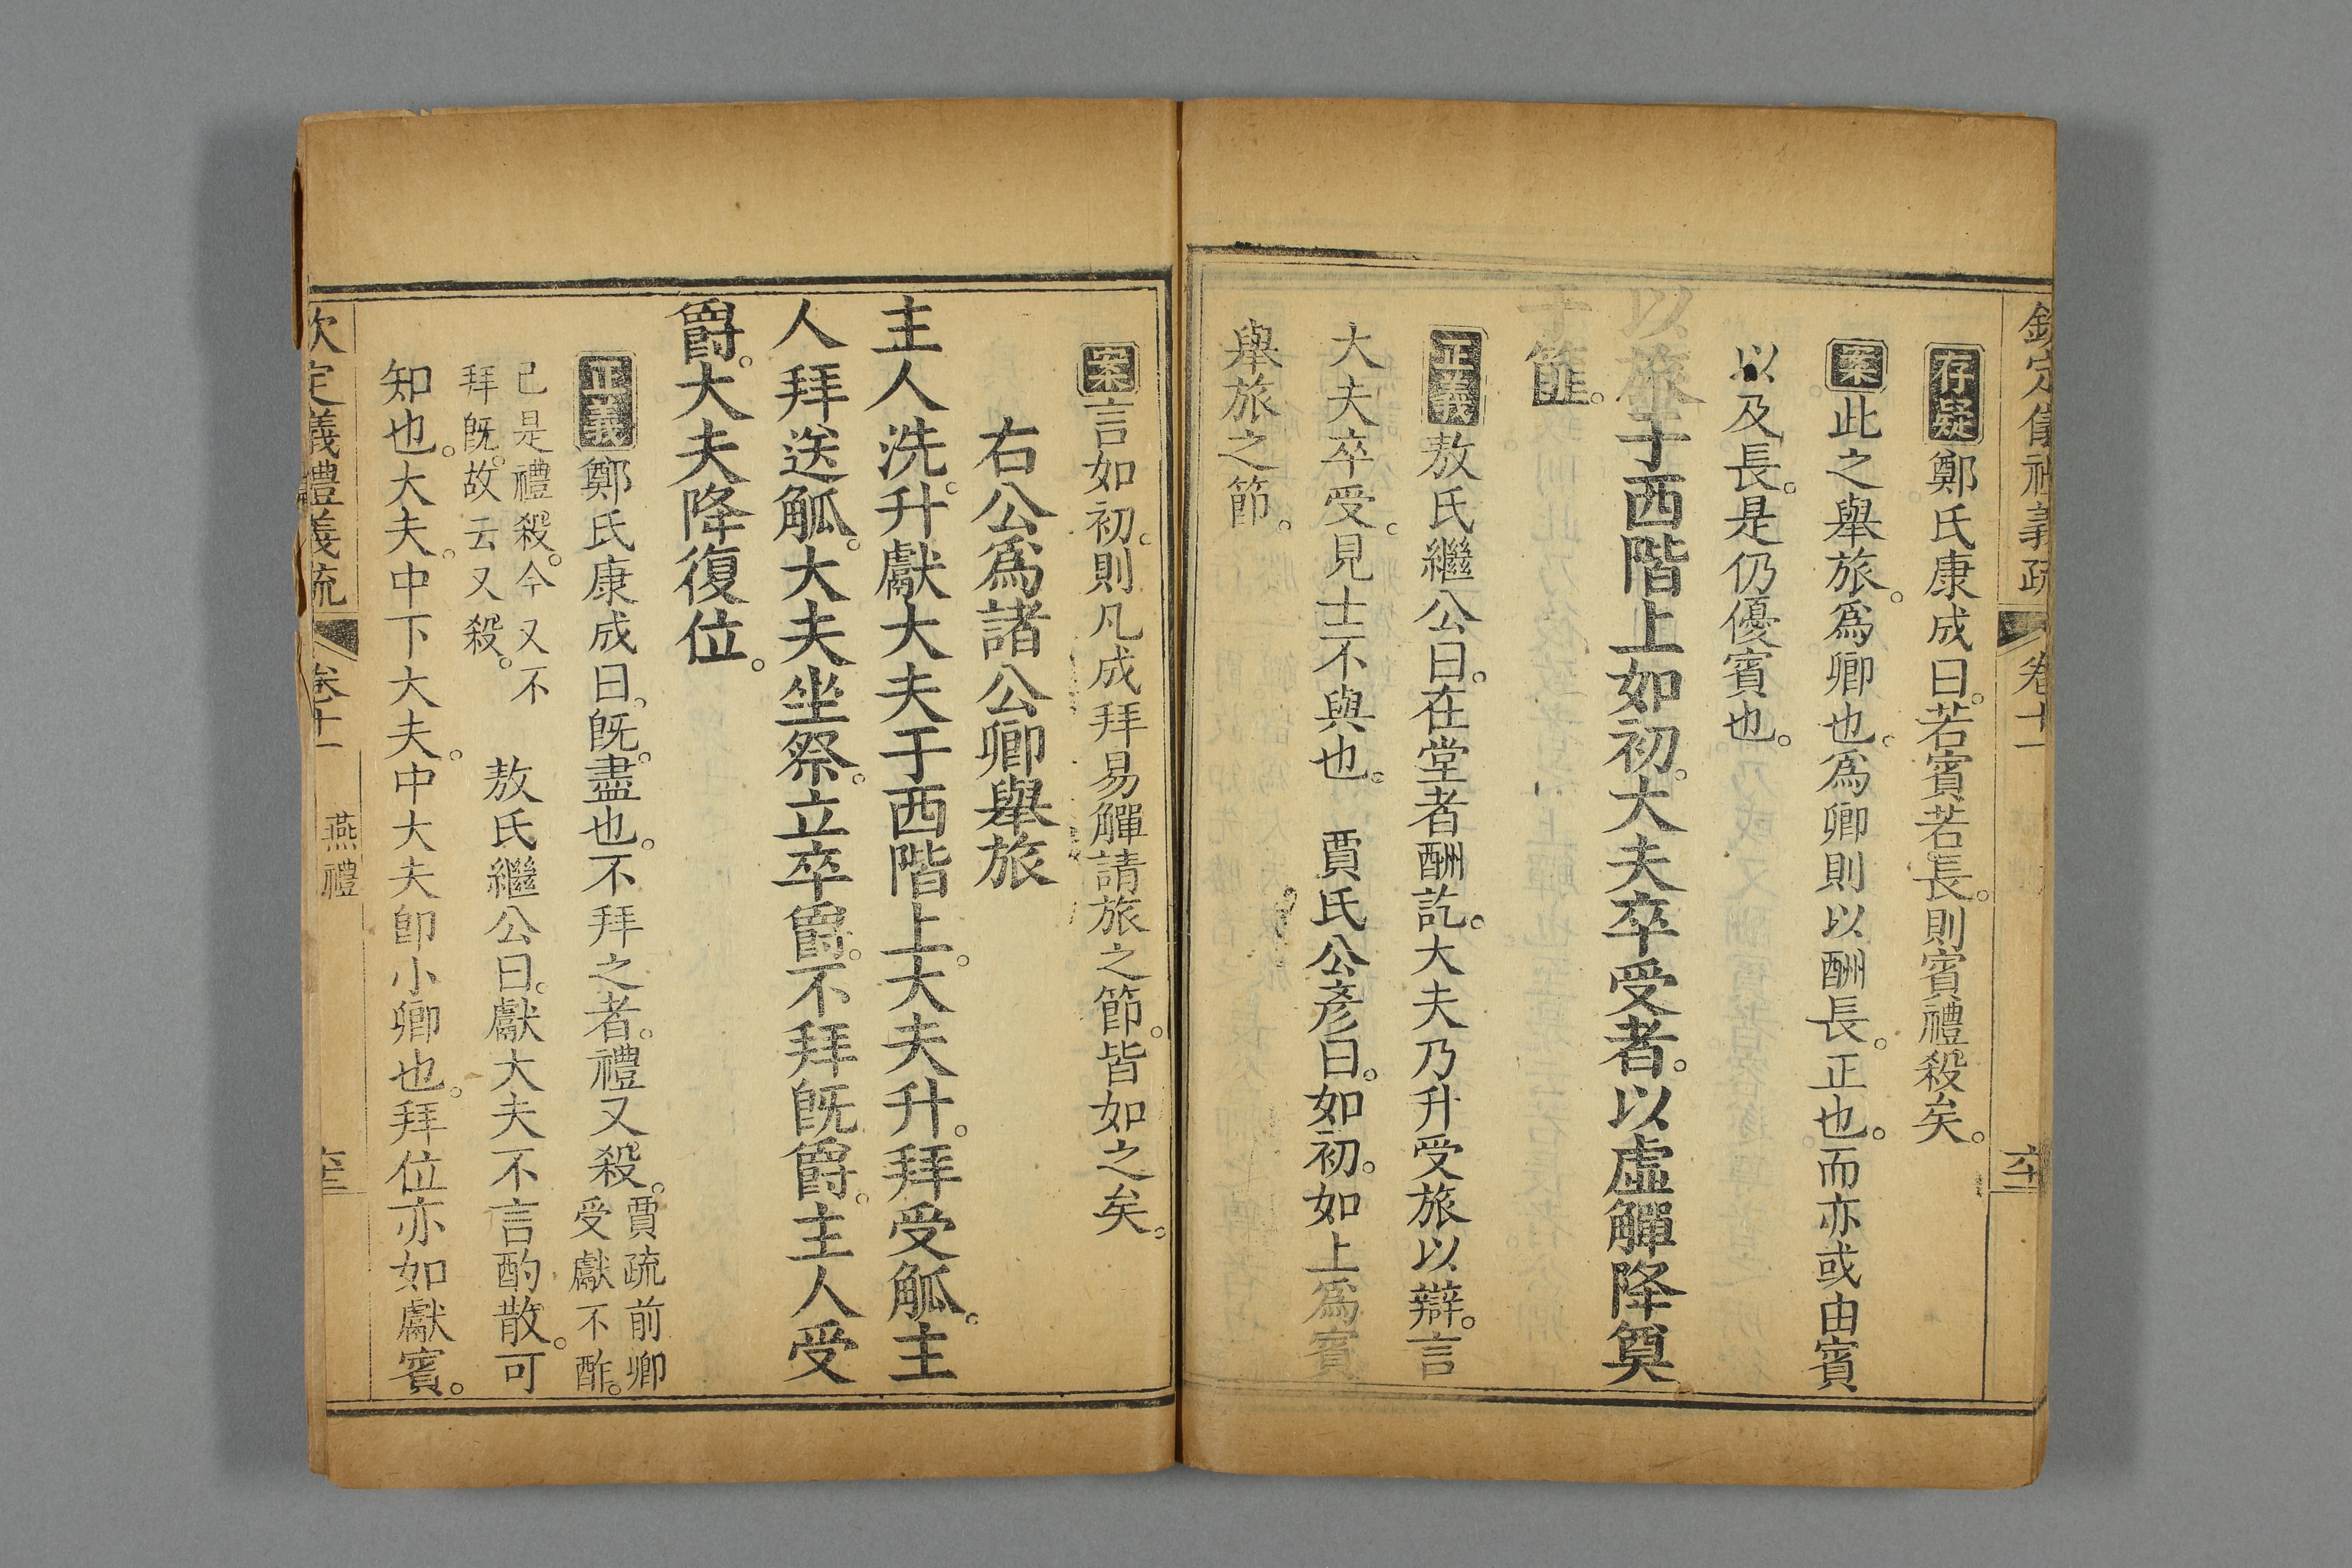 欽定儀禮義疏 卷十一 六十二
存疑鄭氏康成曰。若賓若長。則賓禮殺矣。
案此之舉旅。爲卿也。爲卿則以酬長。正也。而亦或由賓
以及長。是仍優賓也。
以旅于西階上如初。大夫卒受者。以虛觶降奠
于篚。
正義敖氏繼公曰。在堂者酬訖。大夫乃升受旅以辯。言
大夫卒受。見士不與也。 賈氏公彥曰。如初。如上爲賓
舉旅之節。
案言如初。則凡成拜易觶請旅之節。皆如之矣。
右公爲諸公卿舉旅
主人洗。升獻大夫于西階上。大夫升。拜受觚。主
人拜送觚。大夫坐祭。立卒爵。不拜旣爵。主人受
爵。大夫降復位。
正義鄭氏康成曰。旣。盡也。不拜之者。禮又殺。賈疏前卿
受獻不酢。
已是禮殺。今又不
拜旣。故云又殺。 敖氏繼公曰。獻大夫不言酌散。可
知也。大夫。中下大夫。中大夫卽小卿也。拜位亦如獻賓。
欽定儀禮義疏 卷十一 燕禮